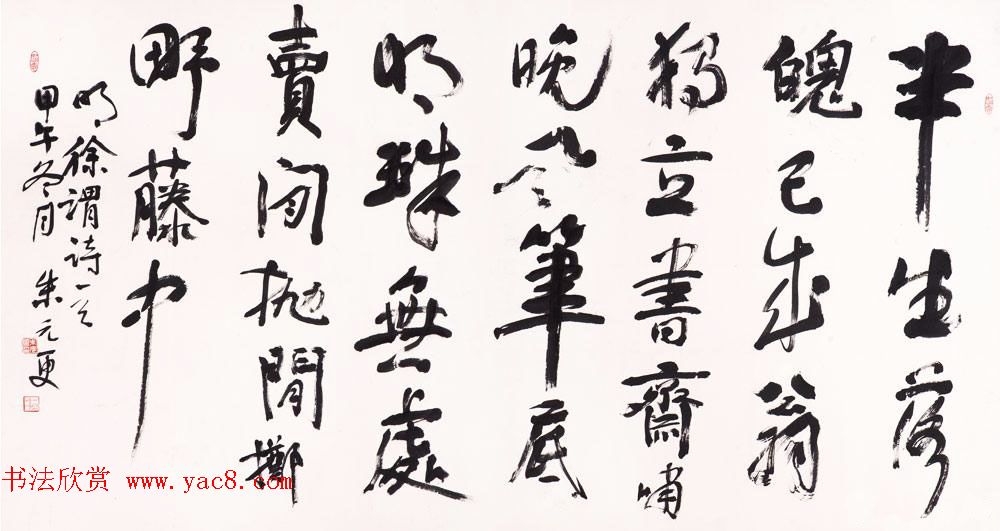 半生落
魄已成翁
独立書齋嘯
晚风筆底
明珠無處
賣闲抛閒擲
野藤中
明徐谓诗一首
甲午冬月 朱元更
书法欣赏 www.yac8.com